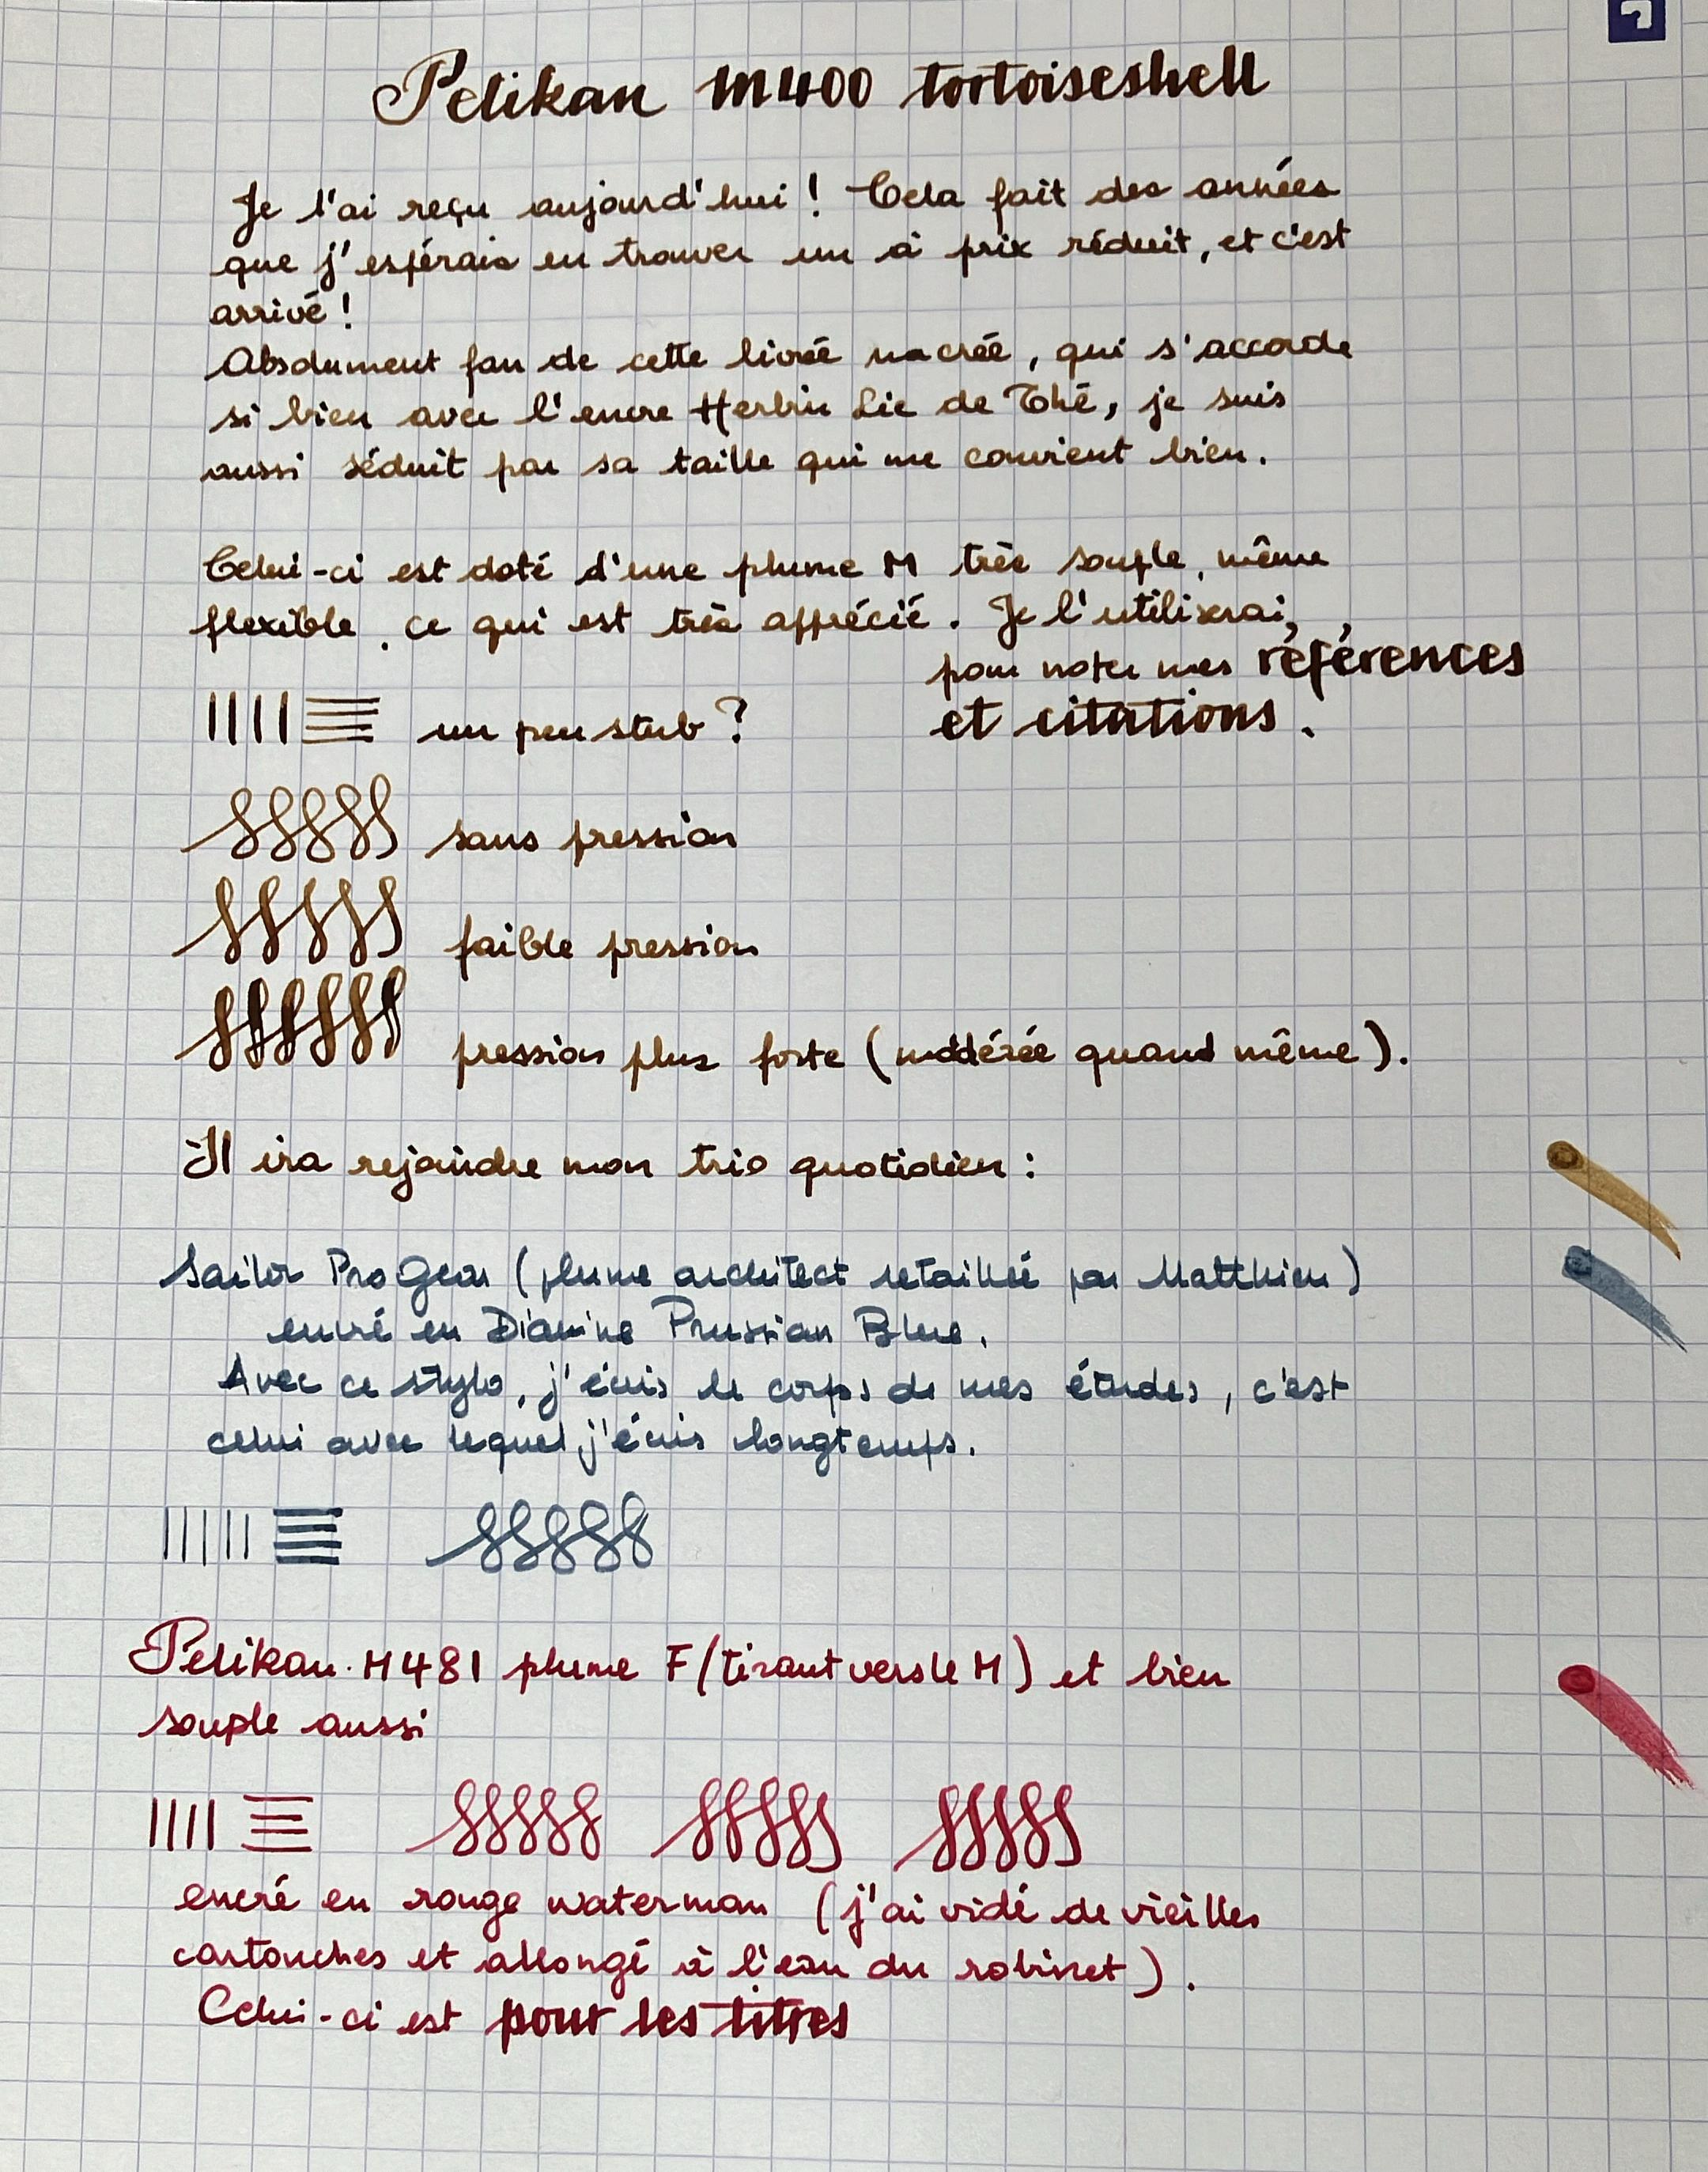 Pelikan M400 tortoiseshell
Je l'ai reçu aujourd'hui ! Cela fait des années
que j'espérais en trouver un à prix réduit, et c'est
arrivé !
Absolument fan de cette livrée nacrée, qui s'accorde
si bien avec l'encre Herbin Lie de Thé, je suis
aussi séduit par sa taille qui me convient bien.
Celui-ci est doté d'une plume M très souple, même
flexible, ce qui est très apprécié. Je l'utiliserai,
pour noter mes références
et citations.
un peu stub ?
sans pression
faible pression
pression plus forte (modérée quand même).
Il ira rejoindre mon trio quotidien :
Sailor Pro Gear (plume architect retaillée par Matthieu)
encré en Diamine Prussian Blue.
Avec ce stylo, j'écris le corps de mes études, c'est
celui avec lequel j'écris longtemps.
Pelikan M481 plume F (tirant vers le M) et bien
souple aussi
encré en rouge waterman (j'ai vidé de vieilles
cartouches et allongé à l'eau du robinet).
Celui-ci est pour les titres